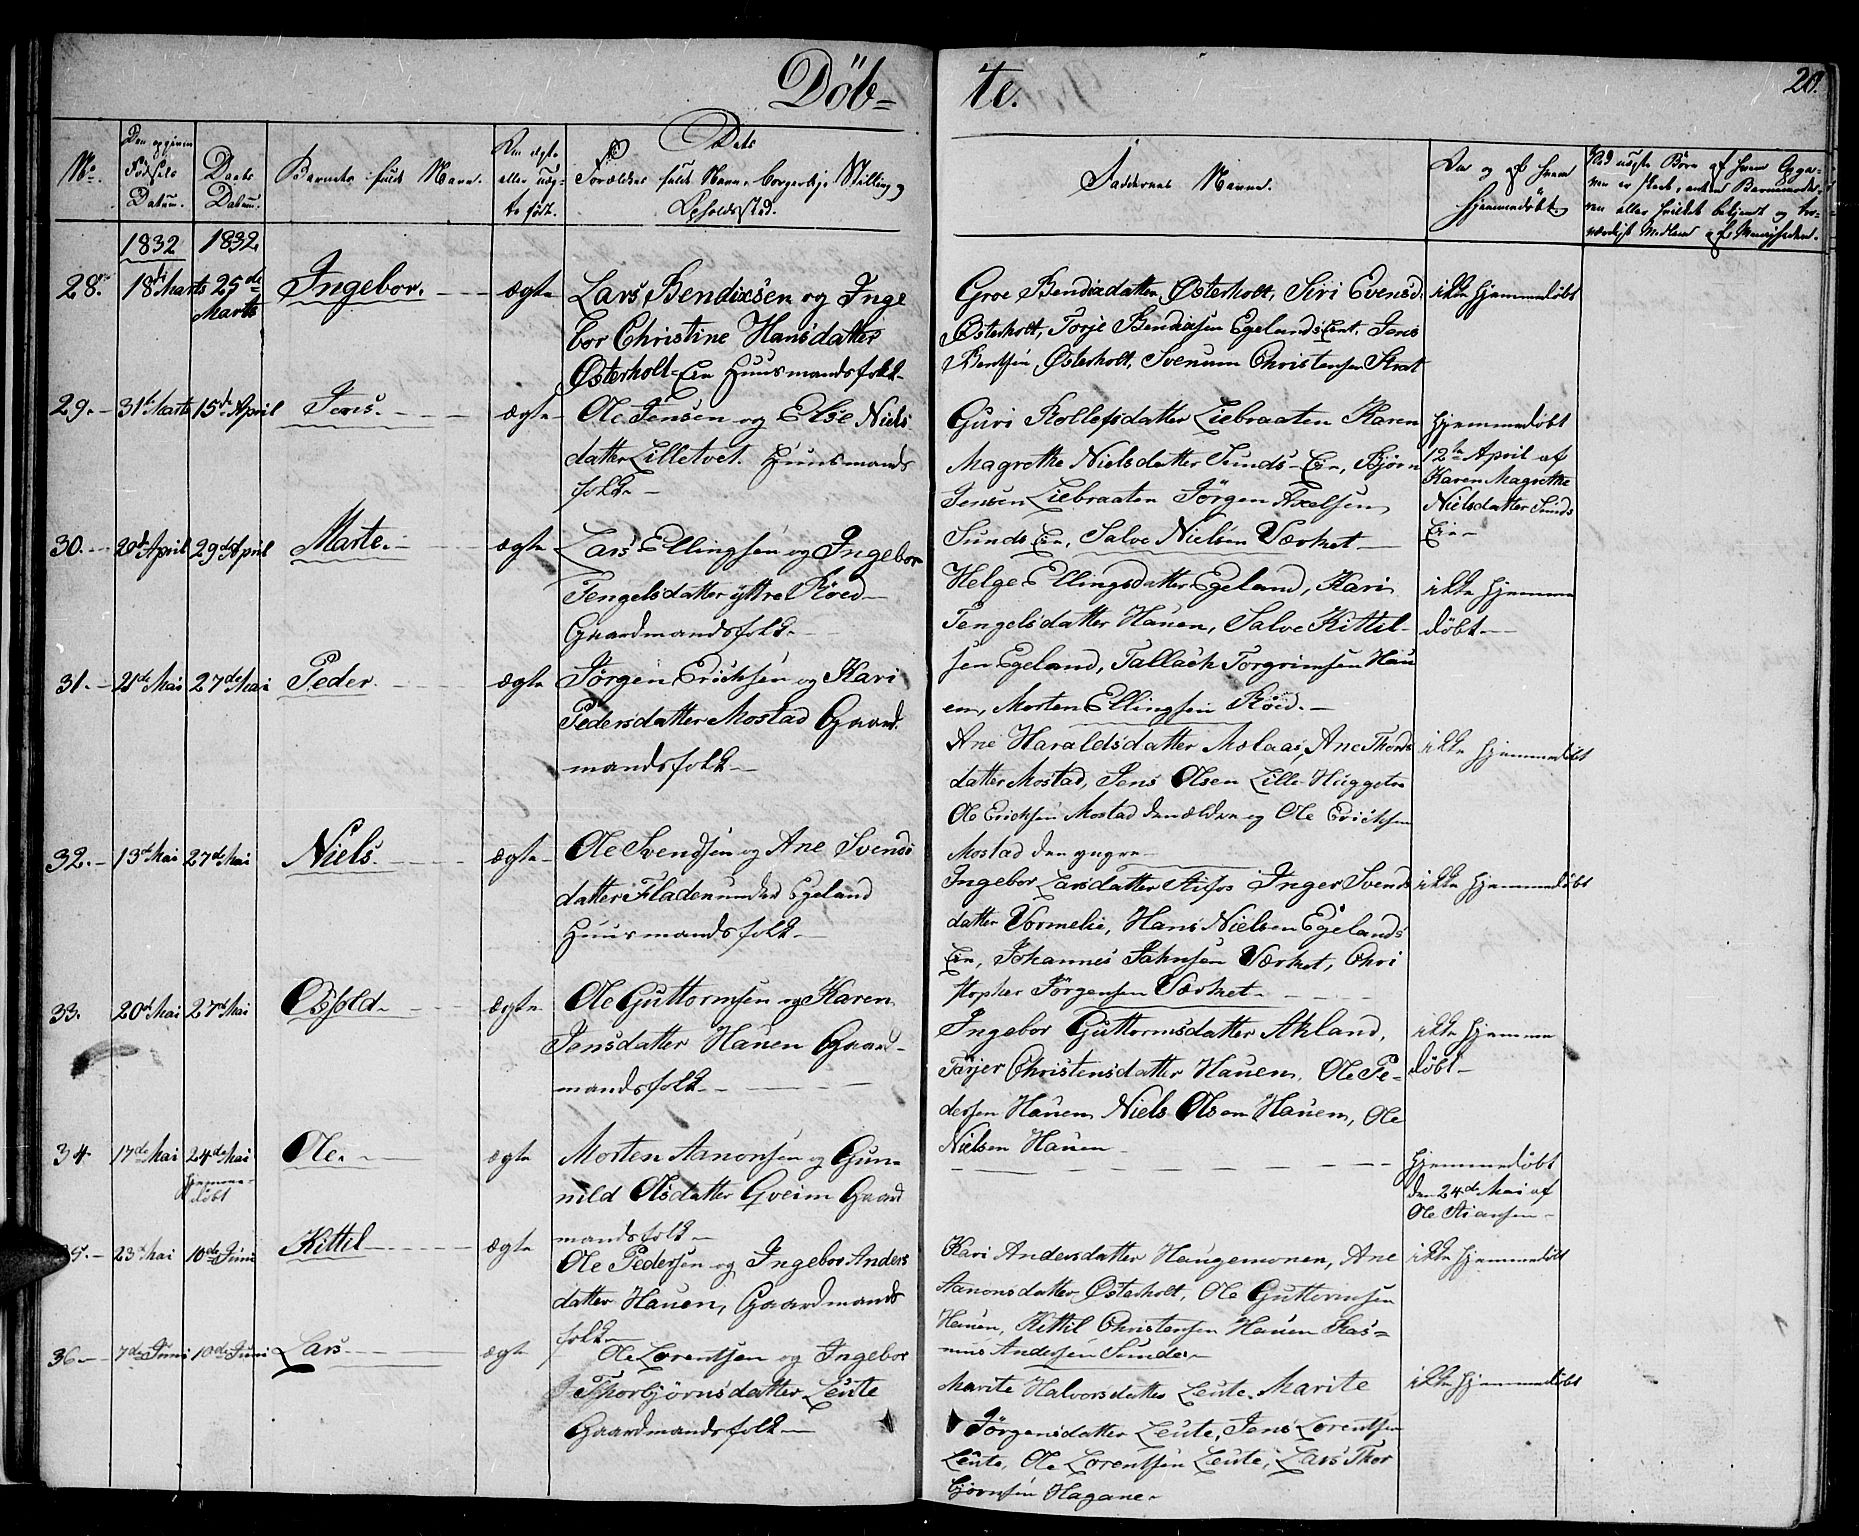 Döb=
te.
20.
No.
Den opgivne Fødsels Datum.
Daabs Datum.
Barnets fulde Navn.
Om ægte eller uægte født.
Dets
Forældres fulde Navn, borgerlige Stilling og Opholdssted.
Faddernes Navne.
hjemmedøbt.
1832
1832.
28.
18de Marts
25de Marts
Ingebor.
ægte
Lars Bendixsen og Inge
bor Christine Hansdatter
Østerholt-Eie Huusmandsfolk
Groe Bendixdatter Østerholt, Siri Evensd.
Østerholt, Torje Bendixsen Egelands Ent. Jens
Bentsen Østerholt, Svenum Christensen Strat
ikke hjemmedøbt
29.
31te Marts
15de April
Jens.
ægte
Ole Jensen og Else Niels
datter Lilletvet. Huusmands
folk
Guri Rollefsdatter Liebraaten Karen
Magrethe Nielsdatter Sunds-Eie, Björn
Jensen Liebraaten Jörgen Axelsen
Sunds Eie, Salve Nielsen Værket
hjemmedøbt
12te April af
Karen Magrethe
Nielsdatter Sunds
Eie
30.
20de April
29de April
Marte.
ægte
Lars Ellingsen og Ingebor
Tengelsdatter yttre Röed
Gaardmandsfolk.
Helge Ellingsdatter Egeland, Kari
Tengelsdatter Hauen, Salve Kittil-
sen Egeland, Tallach Torgrimsen Hau
en, Morten Ellingsen Röed.
ikke hjemme
døbt
31.
21de Mai
27de Mai
Peder.
ægte
Jörgen Erichsen og Kari
Pedersdatter Mostad Gaard
mandsfolk
Ane Haraldsdatter Molaas, Ane Thords
datter Mostad, Jens Olsen Lille Hugget
Ole Erichsen Mostad den ældre og Ole Erichsen
Mostad den yngre
ikke hjemmedøbt
32.
13de Mai
27de Mai
Niels.
ægte
Ole Svendsen og Ane Svends
datter Fladen under Egeland
Huusmandsfolk
Ingebor Larsdatter Inger Svends
datter Vormelie, Hans Nielsen Egelands
Eie, Johannes Jahnsen Værket, Chri
stopher Jörgensen Værket
ikke hjemmedøbt
33.
20de Mai
27de Mai
Osfold.
ægte
Ole Guttormsen og Karen
Jensdatter Hauen Gaard-
mandsfolk
Ingebor Guttormsdatter Akland,
Tarjer Christensdatter Hauen, Ole Pe-
dersen Hauen Niels Olsen Hauen, Ole
Nielsen Hauen
ikke hjemme
døbt
34.
17de Mai
24de Mai
hjemme-
døbt
Ole.
ægte
Morten Aanonsen og Gun-
nild Olsdatter Gveim Gaard
mandsfolk
hjemmedøbt
den 24de Mai af
Ole
35.
23de Mai
10de Juni
Kittil
ægte
Ole Pedersen og Ingebor Anders
datter Hauen, Gaardmands
folk
Kari Andersdatter Haugemonen, Ane
Aanonsdatter Østerholt, Ole Guttormsen
Hauen, Kittil Christensen Hauen Ras=
mus Andersen Sunde
ikke hjemmedøbt
36.
7de Juni
10de Juni
Lars
ægte
Ole Lorentsen og Ingebor
Thorbjörnsdatter Leite
Gaardmandsfolk
Marite Halvorsdatter Leite Marite
Jörgensdatter Leite, Jens Lorentsen
Leite, Ole Lorentsen Leite, Lars Thor
björnsen Hagane
ikke hjemmedøbt